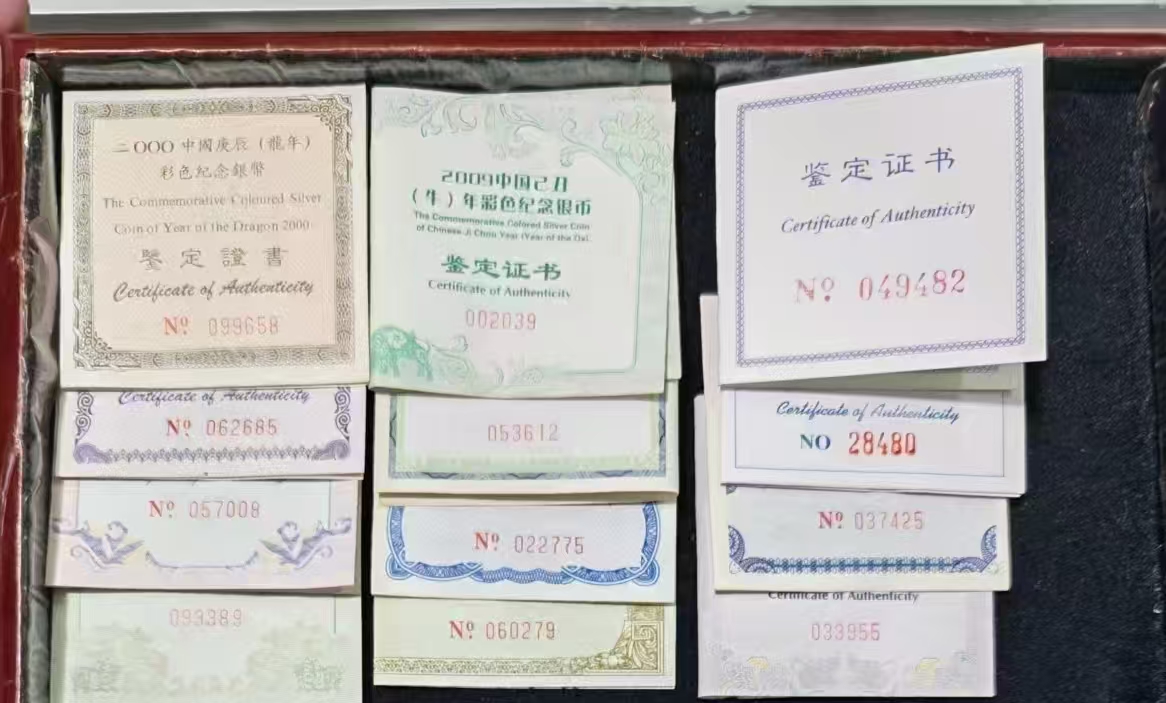 二OOO中國庚辰（龍年）
彩色紀念銀幣
The Commemorative Coloured Silver
Coin of Year of the Dragon 2000
鑒定證書
Certificate of Authenticity
Nº 099658
Certificate of Authenticity
Nº 062685
Nº 057008
093389
2009中国己丑
（牛）年彩色纪念银币
The Commemorative Colored Silver Coin
of Chinese Ji Chou Year (Year of the Ox)
鉴定证书
Certificate of Authenticity
002039
053612
Nº 022775
Nº 060279
鉴定证书
Certificate of Authenticity
Nº 049482
Certificate of Authenticity
NO 28480
Nº 037425
Certificate of Authenticity
033955